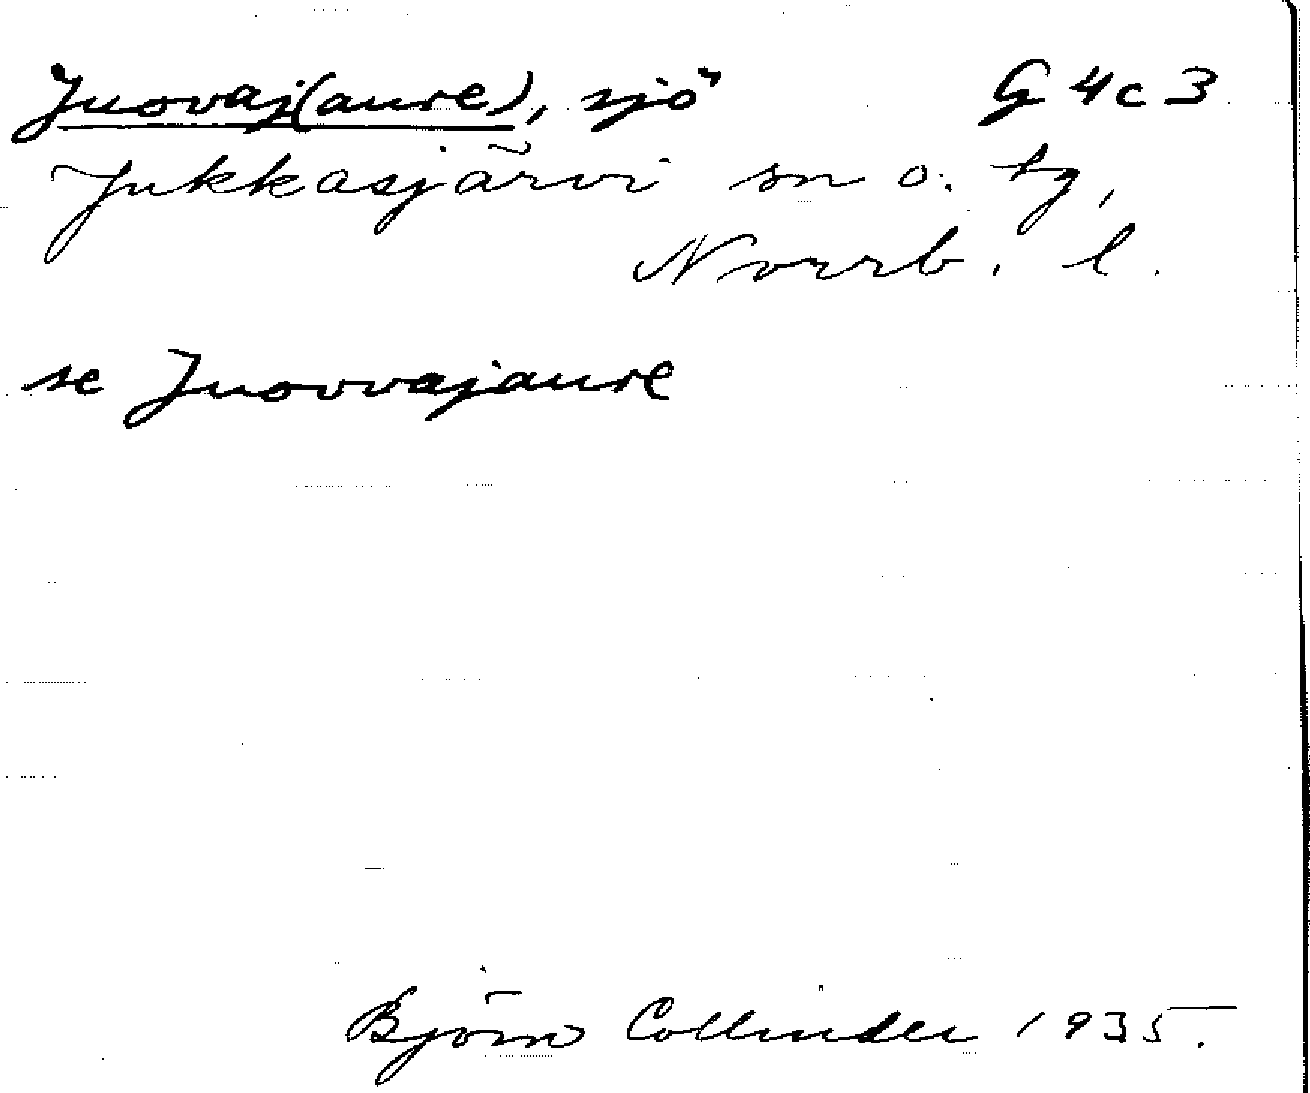 Juovaj(aure), sjö G 4 c 3
Jukkasjärvi sn o. tg,
Norrb. l.
se Juovvajaure
Björn Collinder 1935.